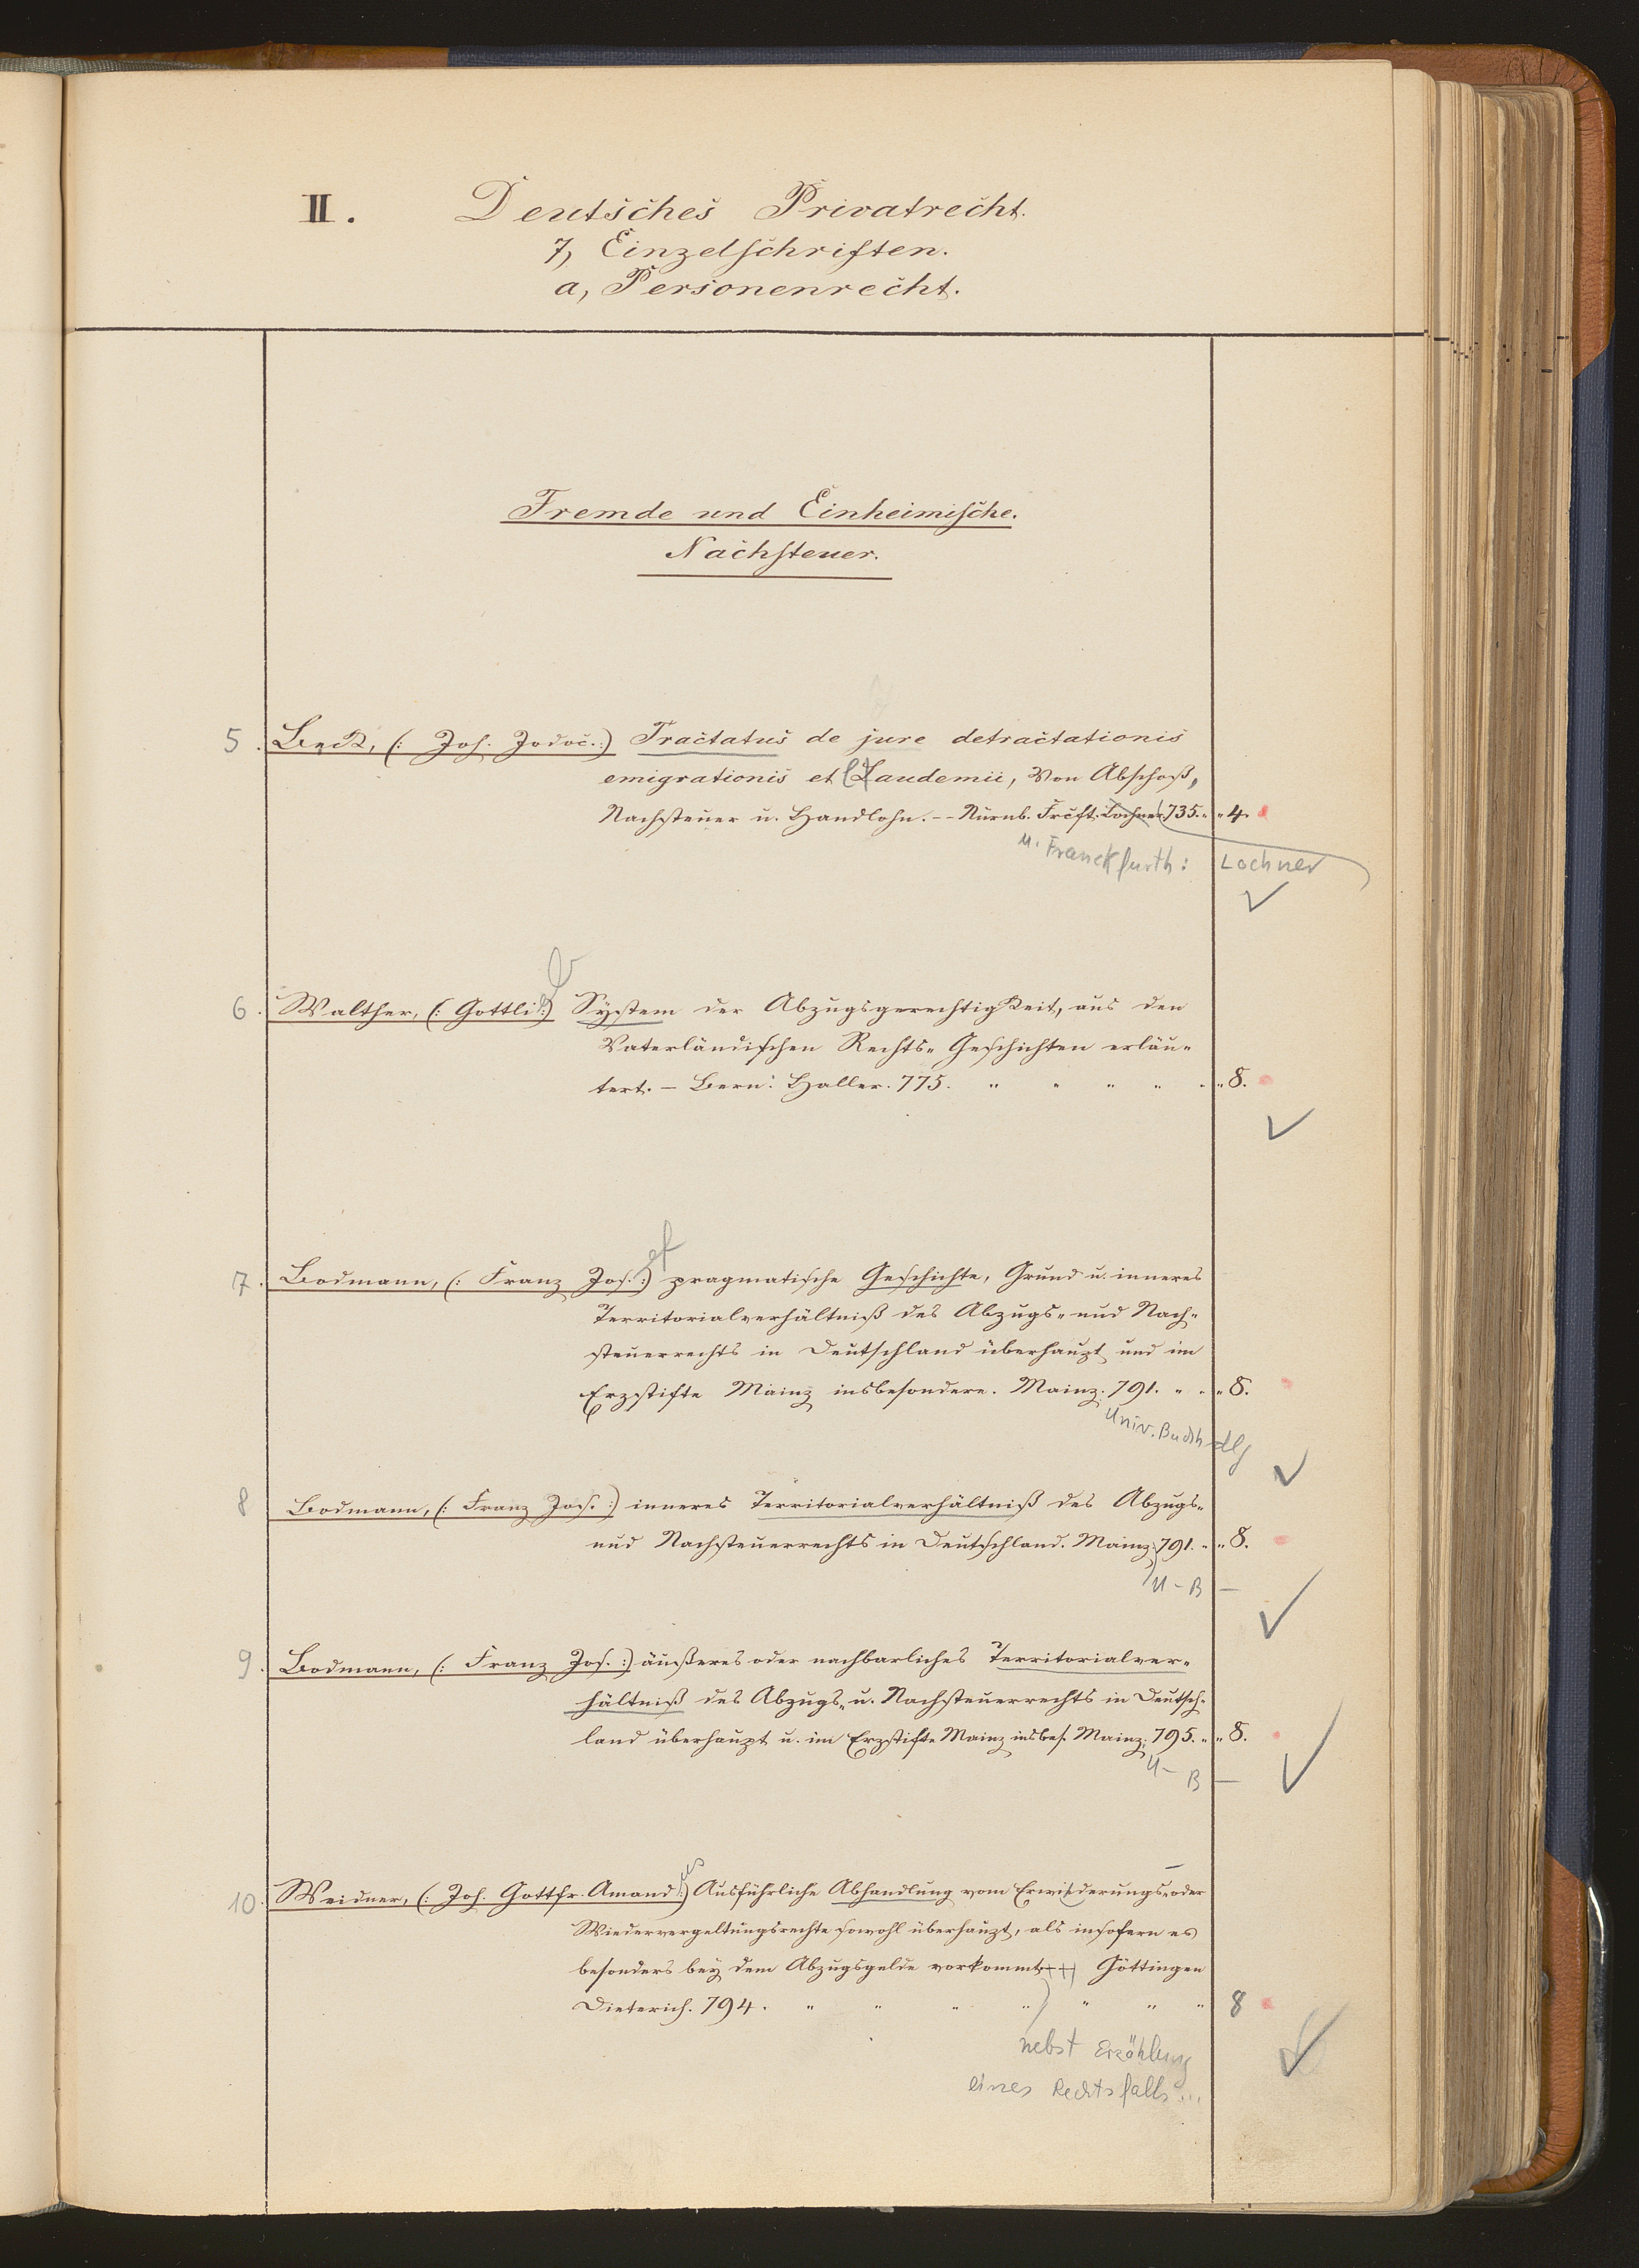 II. Deutsches Privatrecht.
7, Einzelschriften.
a, Personenrecht.
Fremde und Einheimische.
Nachsteuer.
5. Beck, (: Joh. Jodoc. :) Tractatus de jure detractationis
emigrationis et Laudemii, Von Abschoß,
Nachsteuer u. Handlohn. -- Nürnb. Frcft. Lochner 735. " " 4.
u. Franckfurth: Lochner
6. Walther, (: Gottli :) System der Abzugsgerechtigkeit, aus den
Vaterländischen Rechts- Geschichten erläu-
tert. – Bern: Haller. 775. " " " " " " 8.
7. Bodmann, (: Franz Jos. :) pragmatische Geschichte, Grund u. inneres
ef
Territorialverhältniß des Abzugs- und Nach-
steuerrechts in Deutschland überhaupt und im
Erzstifte Mainz insbesondere. Mainz. 791. " " " 8.
Univ. Buchhdlg
8 Bodmann, (: Franz Jos. :) inneres Territorialverhältniß des Abzugs-
und Nachsteuerrechts in Deutschland. Mainz. 791. " " 8.
U - B -
9. Bodmann, (: Franz Jos. :) äußeres oder nachbarliches Territorialver-
hältniß des Abzugs- u. Nachsteuerrechts in Deutsch-
land überhaupt u. im Erzstifte Mainz insbes. Mainz. 795. " " 8.
U - B -
10. Weidner, (: Joh. Gottfr. Amand :) Ausführliche Abhandlung vom Erwiederungs- oder
us
Wiedervergeltungsrechte sowohl überhaupt, als insofern es
besonders bey dem Abzugsgelde vorkommt Göttingen
Dieterich. 794. " " " " " " " 8
nebst Erzählung
eines Rechtsfalls ...